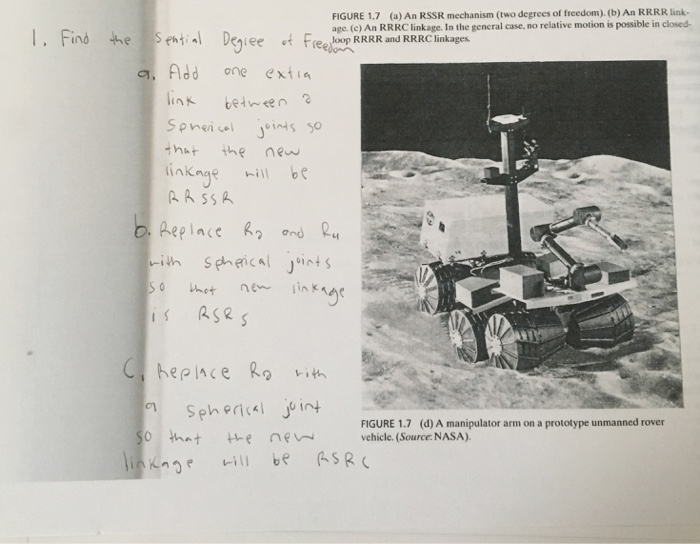 FIGURE 1.7 (a) An RSSR mechanism (two degrees of freedom). (b) An RRRR link-
age. (c) An RRRC linkage. In the general case, no relative motion is possible in closed-
loop RRRR and RRRC linkages.
1. Find the Spatial Degree of Freedom
a. Add one extra
link between 2
Spherical joints so
that the new
linkage will be
RRSSR
b. Replace R2 and R4
with spherical joints
so that new linkage
is RSRS
C. Replace R2 with
a spherical joint
so that the new
linkage will be RSRC
FIGURE 1.7 (d) A manipulator arm on a prototype unmanned rover
vehicle. (Source: NASA).